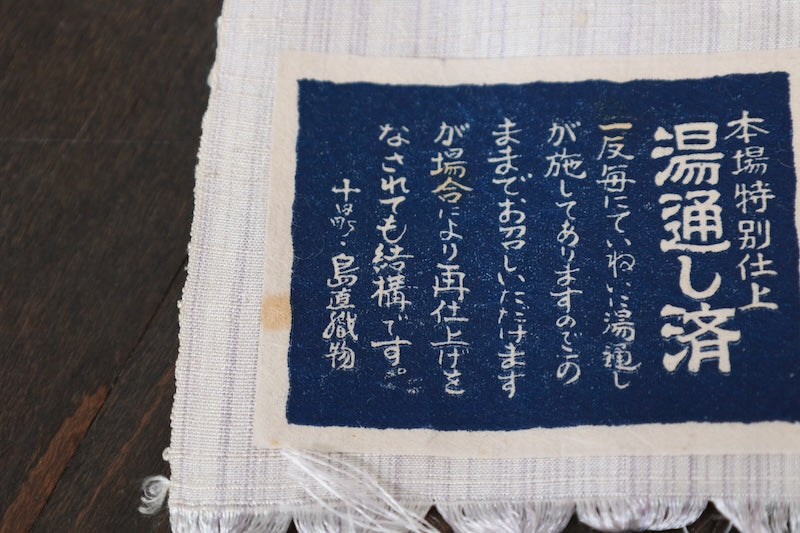 本場特別仕上
湯通し済
一反毎にていねいに湯通し
が施してありますのでこの
ままで、お召しいただけます
が場合により再仕上げを
なされても結構です。
十日町・島直織物